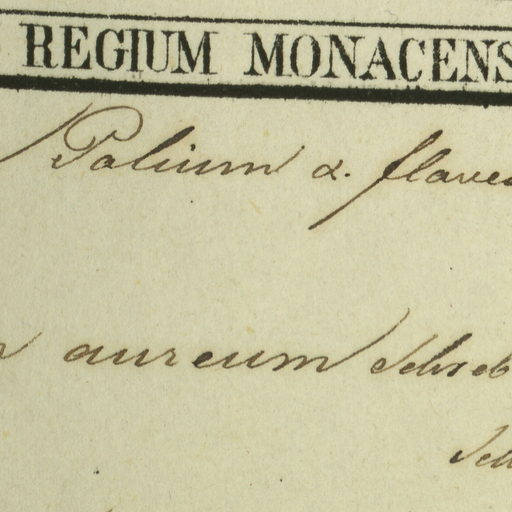 REGIUM MONACENS
Palium α. flave
aureum Schreb